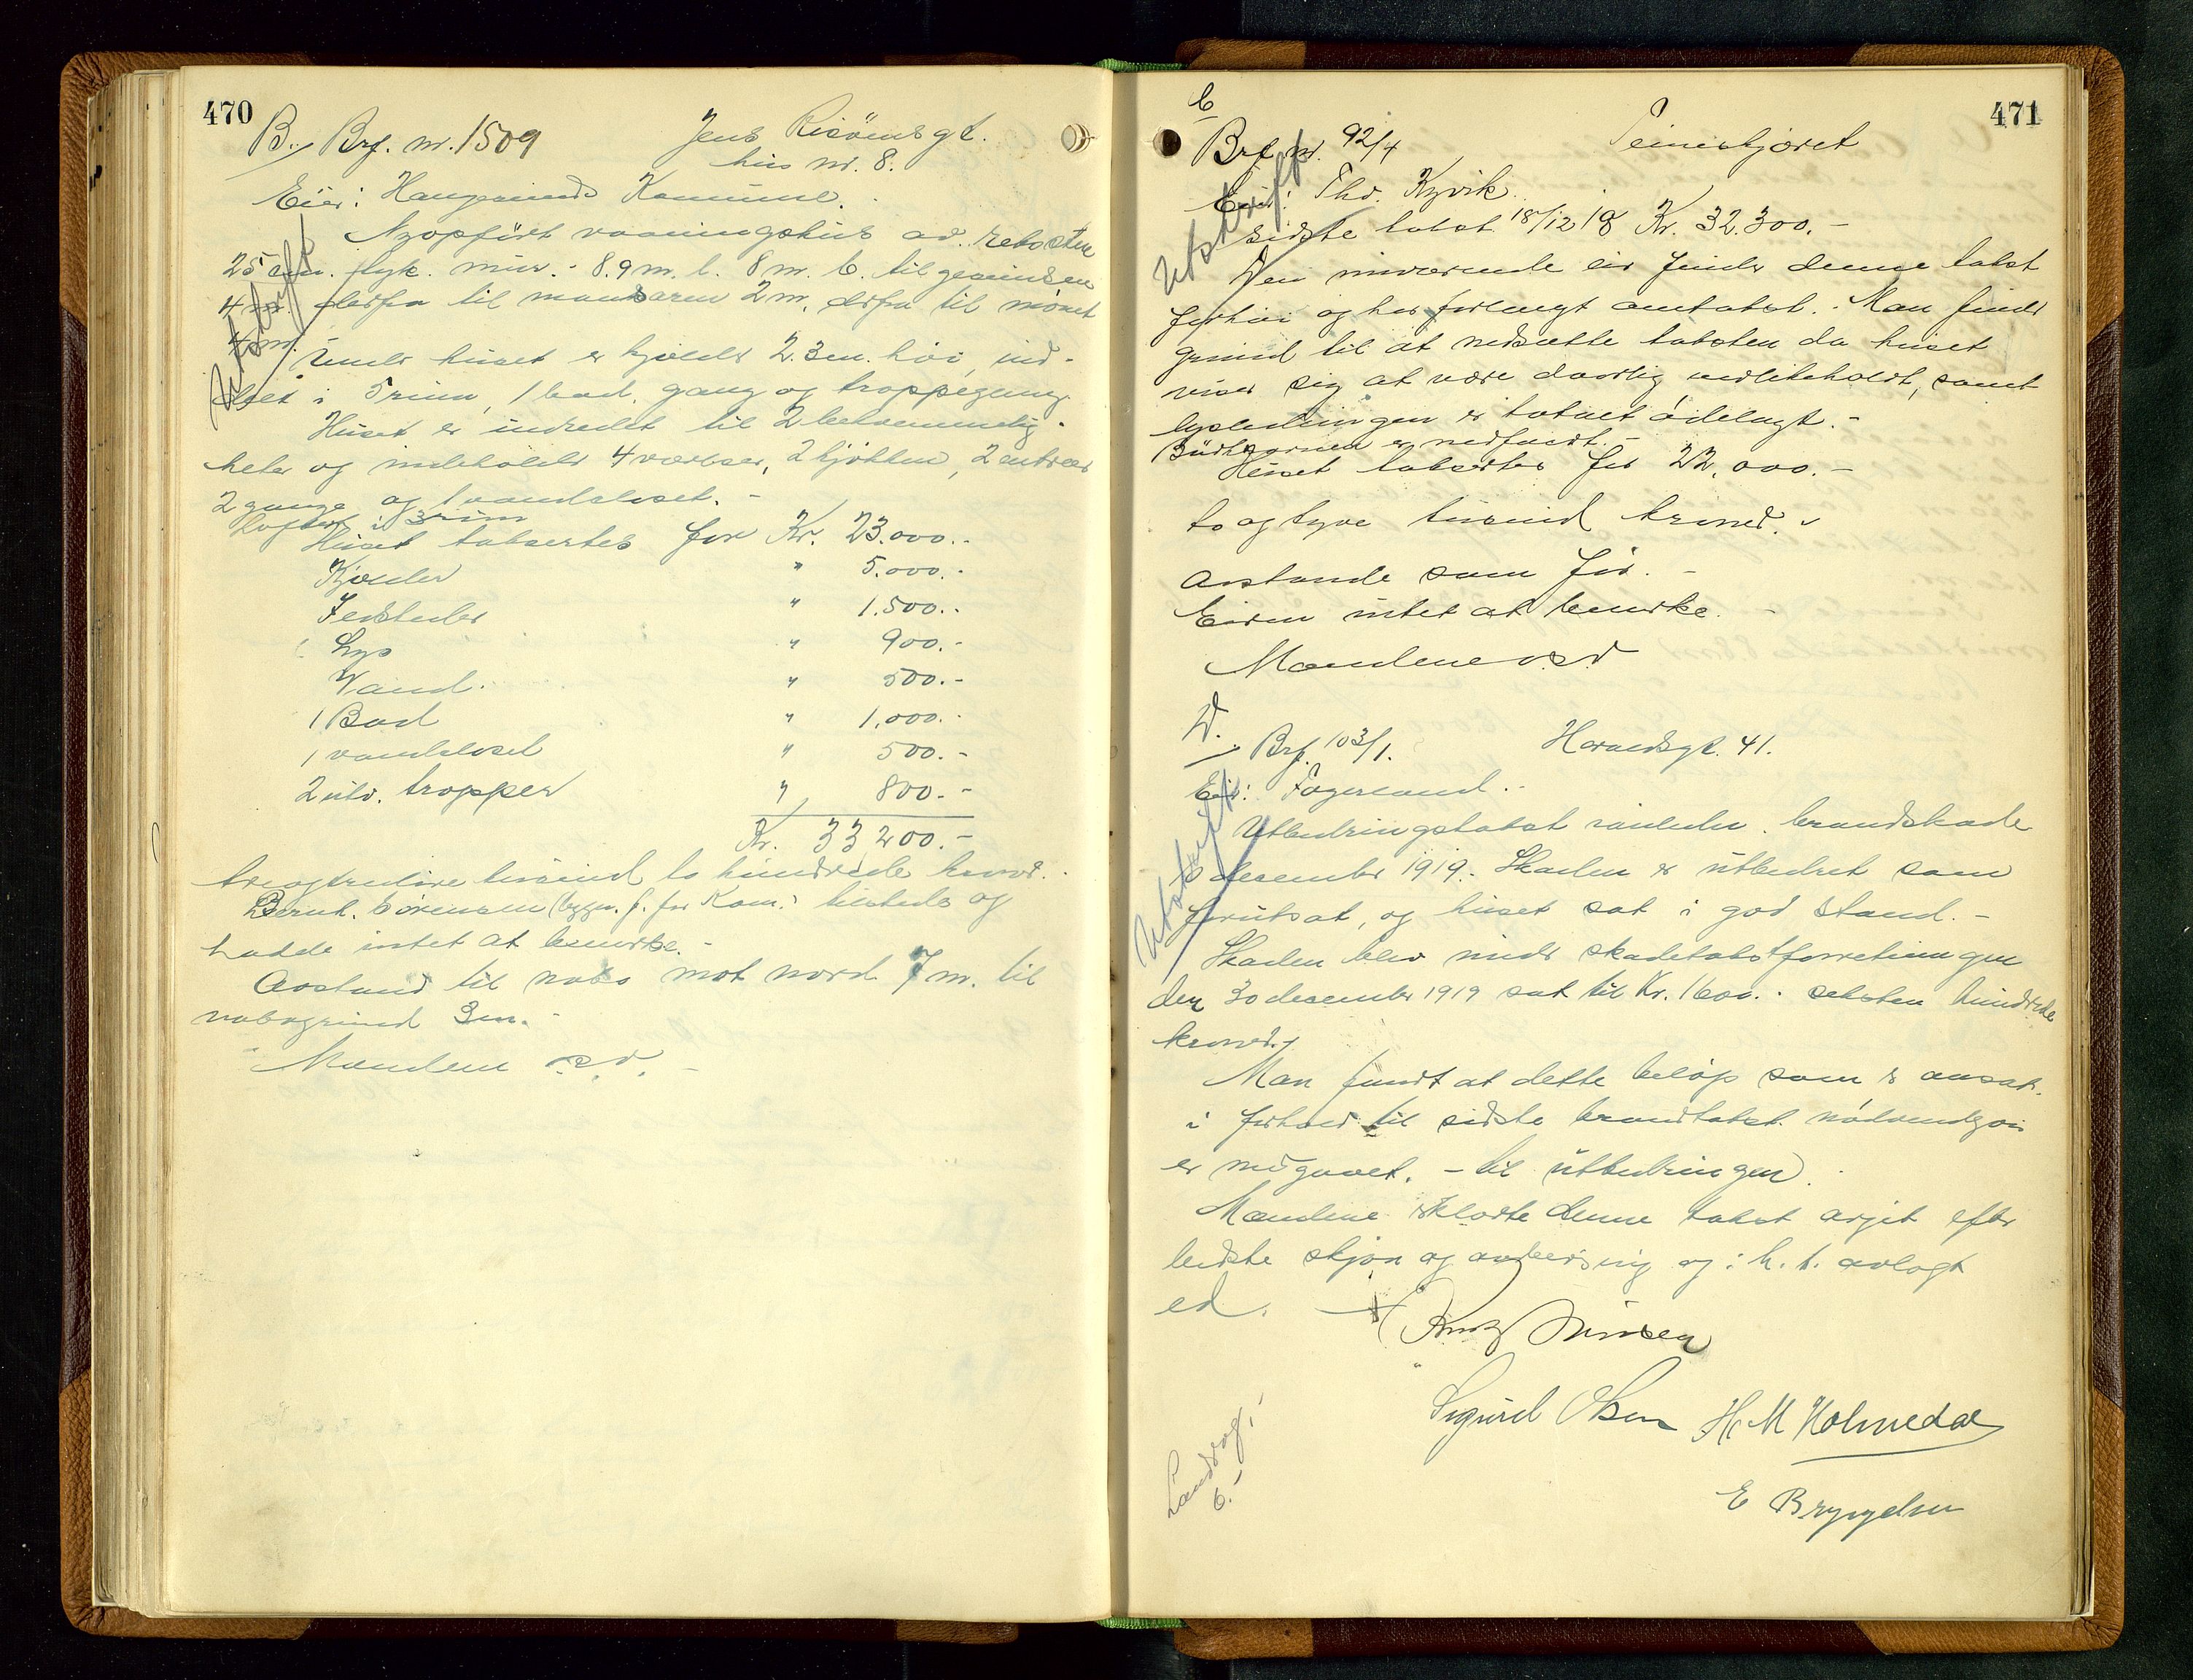 470
B. Brf. nr. 1509 Jens Risöensgt.
hus nr. 8.
Eier: Haugesunds Komune.
Utskrift
Nyopfört vaaningshus av
25 cm. tyk. mur. - 8.9 m. l. 8 m. b. til gesimsen
4 m. derfra til mansaren 2 m. derfra til mönet
4 m.
Under huset er kjelder 2.3 m. höi, ind-
delt i 5 rum, 1 bad, gang og trappegang.
Huset er indredet til 2 bekvemmelig-
heter og indeholder 4 værelser, 2 kjökken, 2 entreer
2 gange og 1 vandcloset. -
Loftet i 3 rum
Huset takseres for Kr. 23.000.-
Kjelder " 5.000.-
" 1.500.-
Lys " 900.-
Vand. " 500.-
1 Bad " 1.000.-
1 vandcloset " 500.-
2 utv. trapper " 800.-
Kr. 33200.-
treogtredive tusind to hundrede kroner.
Bernt. Sörensen (bygn. f. for Kom. tilstede og
hadde intet at bemerke.-
Avstand til nabo mot nord 7 m. til
nabogrund 3 m. -
Mændene s.d.
471
C
Brf. nr. 92/4
Utskrift
Eier: Thv. Kyvik
sidste takst 18/12 18 Kr. 32.300.-
Den nuværende eier finder denne takst
forhöi og har forlangt omtakst. Man finder
grund til at nedsætte taksten da huset
viser sig at være daarlig vedlikeholdt, samt
lysledningen er totalt ödelagt.-
er nedfaldt.-
Huset takseres for 22.000.-
to og tyve tusind kroner.
Avstande som för. -
Eieren intet at bemerke. -
Mændene s.d
D.
Brf. 103/1. Haraldsgt. 41.
Eier: Fagerland.
Utskrift
Utbedringstakst brandskade
desember 1919. Skaden er utbedret som
forutsat, og huset sat i god stand. -
Skaden blev under skadetakstforretningen
den 30 desember 1919 sat til Kr. 1600.- seksten hundrede
kroner.
Man fandt at dette belöp som er ansat
i forhold til sidste brandtakst nödvendigvis
er medgaaet. - til utbedringen.
Mændene erklærte denne takst avgit efter
bedste skjön og overbevisning og i h. t. avlagt
ed.
Sigurd Olsen H M Holmedal
E Bryngelsen
6.-